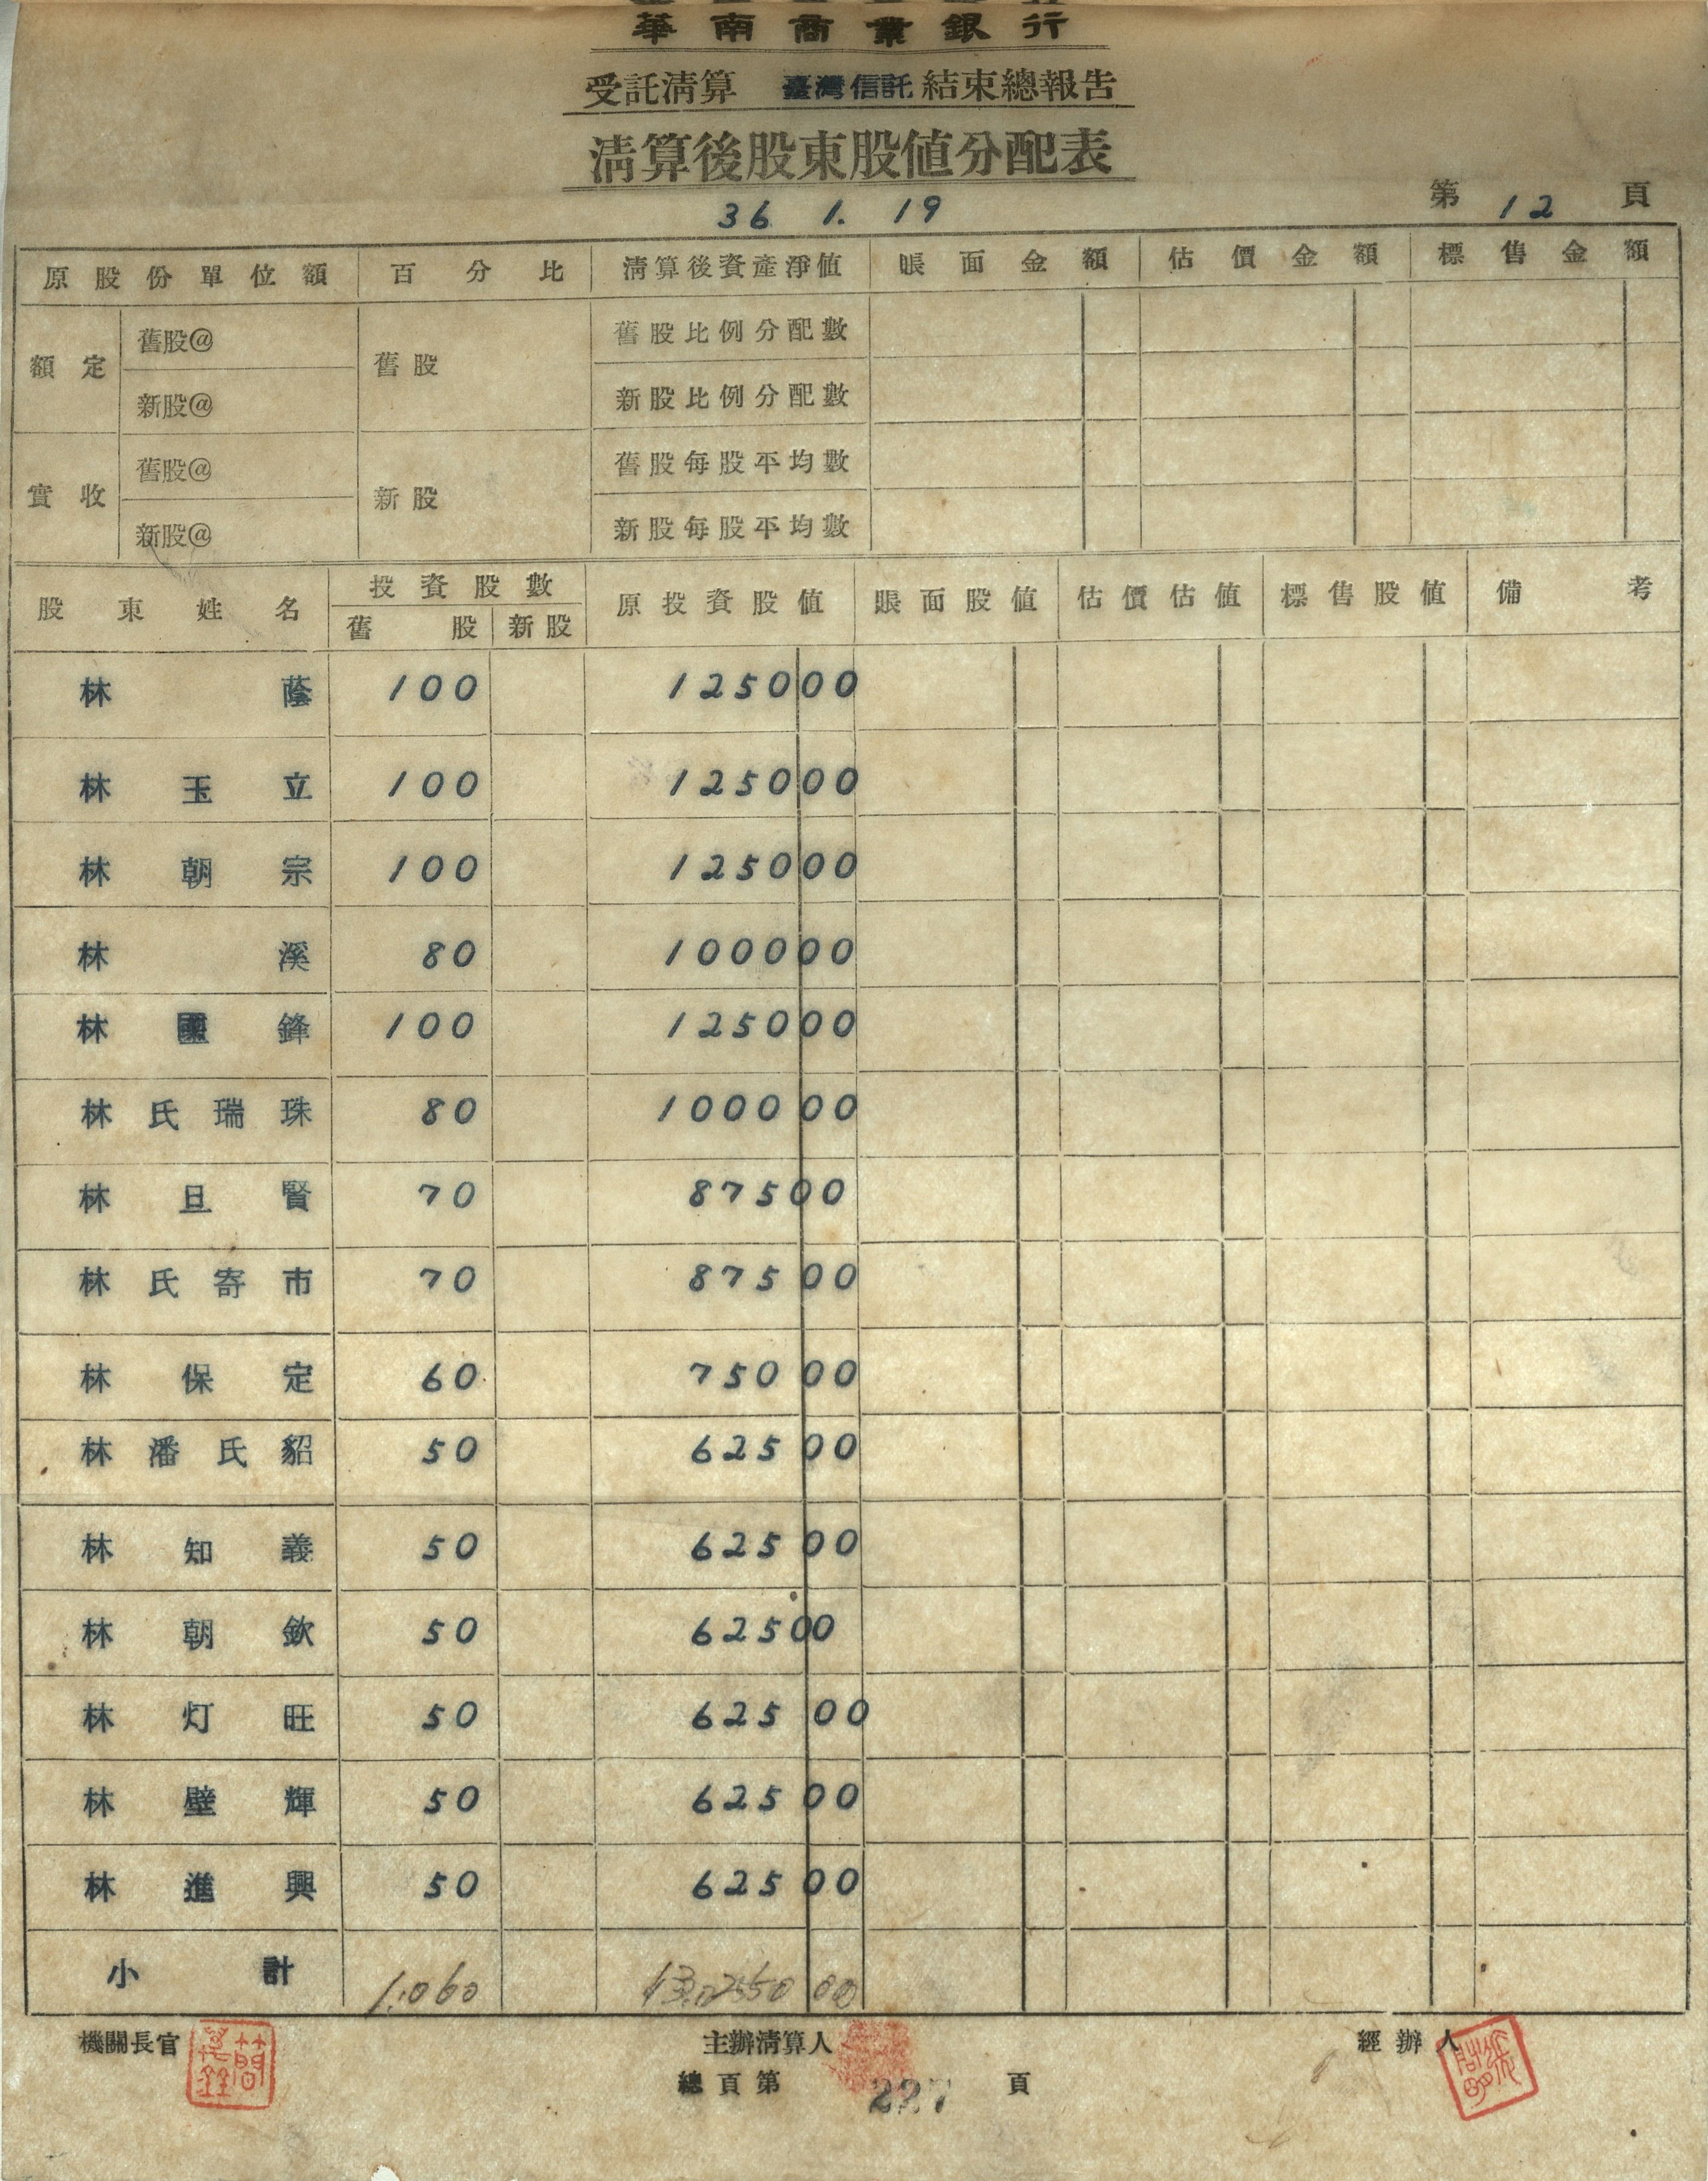 華南商業銀行
受託清算 臺灣信託 結束總報告
清算後股東股值分配表
36 1. 19
第 12 頁
原股份單位額 百分比 清算後資產淨值 賬面金額 估價金額 標售金額
額定 舊股@ 舊股 舊股比例分配數
新股@ 新股比例分配數
實收 舊股@ 新股 舊股每股平均數
新股@ 新股每股平均數
股東姓名 投資股數 原投資股值 賬面股值 估價估值 標售股值 備考
舊股 新股
林蔭 100 1250 00
林玉立 100 1250 00
林朝宗 100 1250 00
林溪 80 1000 00
林國鋒 100 1250 00
林氏瑞珠 80 1000 00
林旦賢 70 875 00
林氏寄市 70 875 00
林保定 60 750 00
林潘氏貂 50 625 00
林知義 50 625 00
林朝欽 50 625 00
林灯旺 50 625 00
林壁輝 50 625 00
林進興 50 625 00
小計 1.060 00
機關長官 主辦清算人 經辦人
總頁第 227 頁